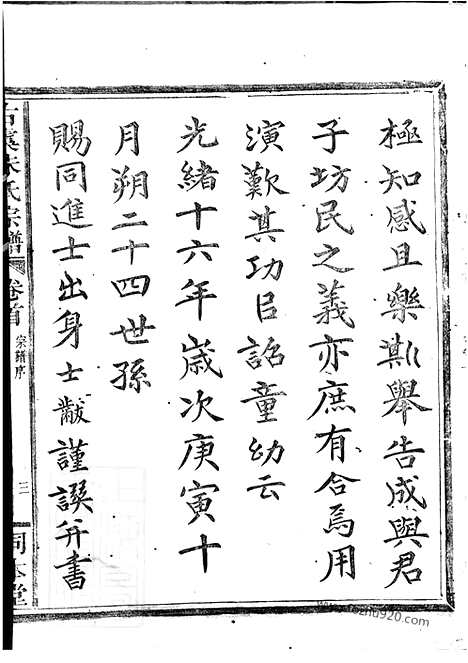 極知感且樂斯舉告成與君
子坊民之義亦庶有合焉用
演歎其功㠯詔童幼云
光緒十六年歲次庚寅十
月朔二十四世孫
賜同進士出身士黻謹譔并書
朱氏宗譜
卷首
宗譜序
三
本堂